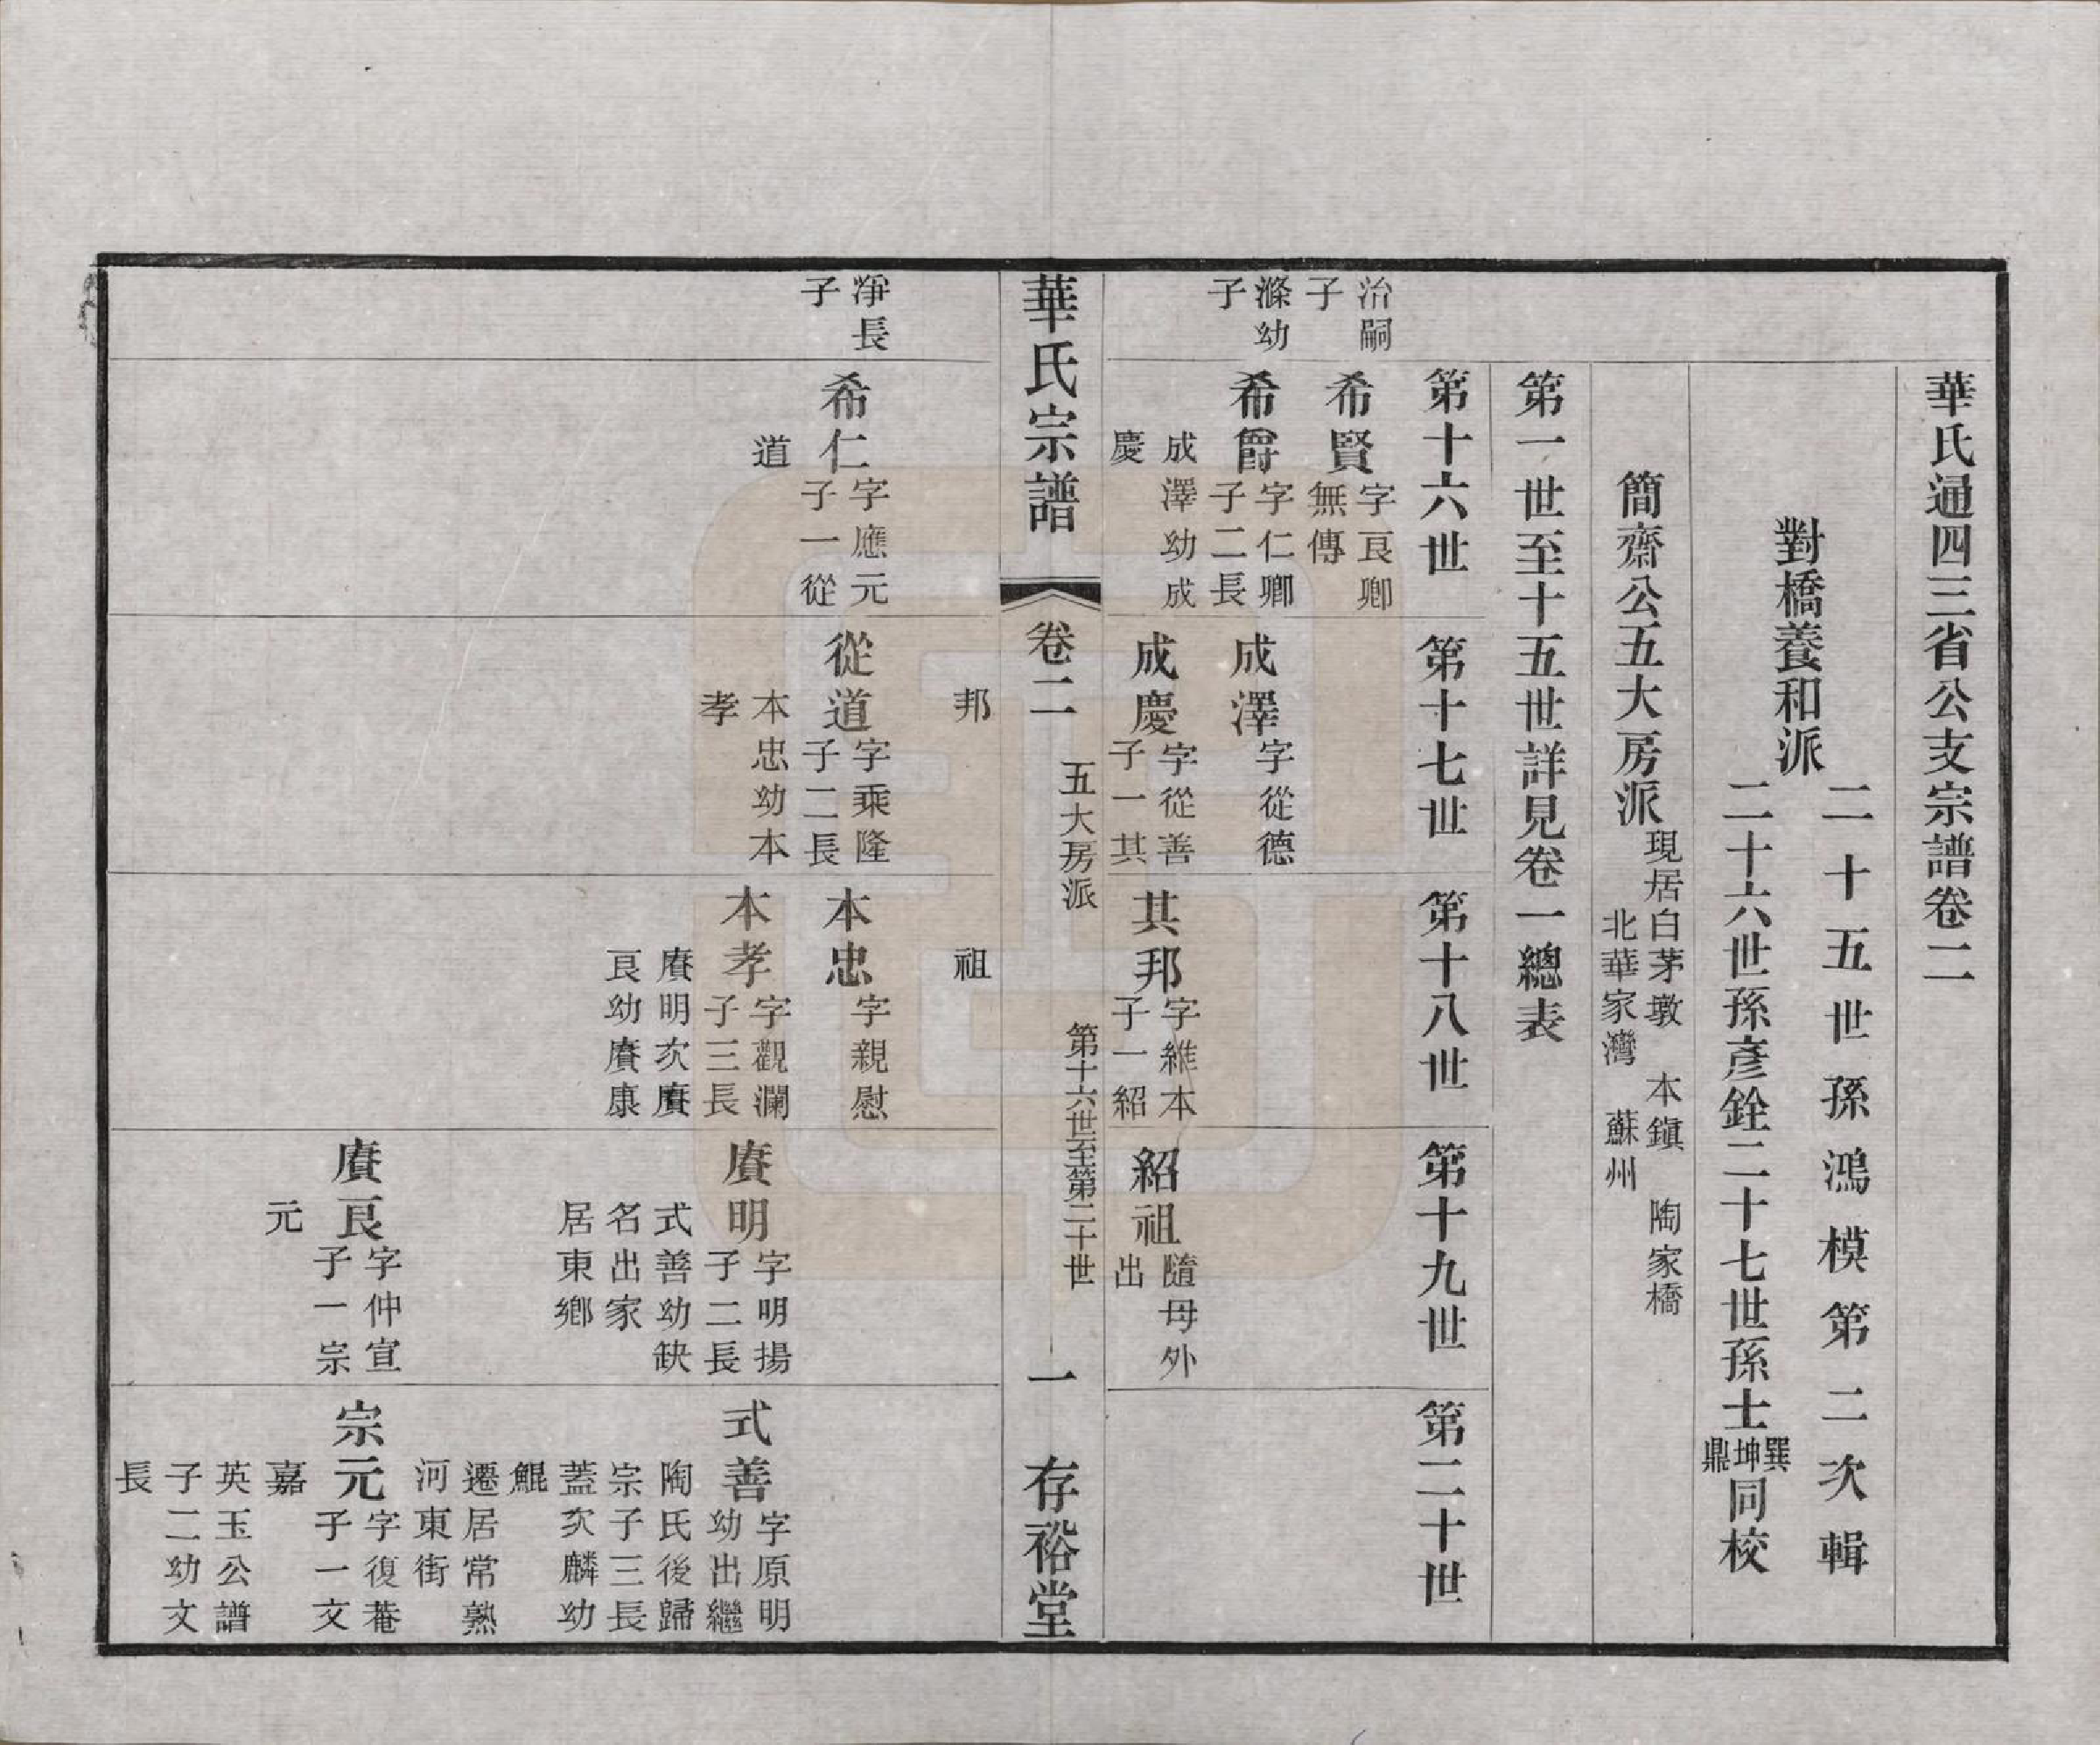 華氏通四三省公支宗譜卷二
對橋養和派
二十五世孫鴻模第二次輯
二十六世孫彥銓二十七世孫士巽坤鼎同校
簡齋公五大房派
現居白茅墩 本鎮 陶家橋
北華家灣 蘇州
第一世至十五世詳見卷一總表
第十六世
第十七世
第十八世
第十九世
第二十世
治嗣
子
希賢
字良卿
無傳
滌幼
子
希爵
字仁卿
子二長
成澤幼成
慶
成澤
字從德
成慶
字從善
子一其
邦
其邦
字維本
子一紹
祖
紹祖
隨母外
出
華氏宗譜
卷二
五大房派
第十六世至第二十世
一
存裕堂
淨長
子
希仁
字應元
子一從
道
從道
字乘隆
子二長
本忠幼本
孝
本忠
字親慰
本孝
字觀瀾
子三長
賡明次賡
良幼賡康
賡明
字明揚
子二長
式善幼缺
名出家
居東鄉
式善
字原明
幼出繼
陶氏後歸
宗子三長
蓋次麟幼
鯤
遷居常熟
河東街
賡良
字仲宣
子一宗
元
宗元
字復菴
子一文
嘉
英玉公譜
子二幼文
長